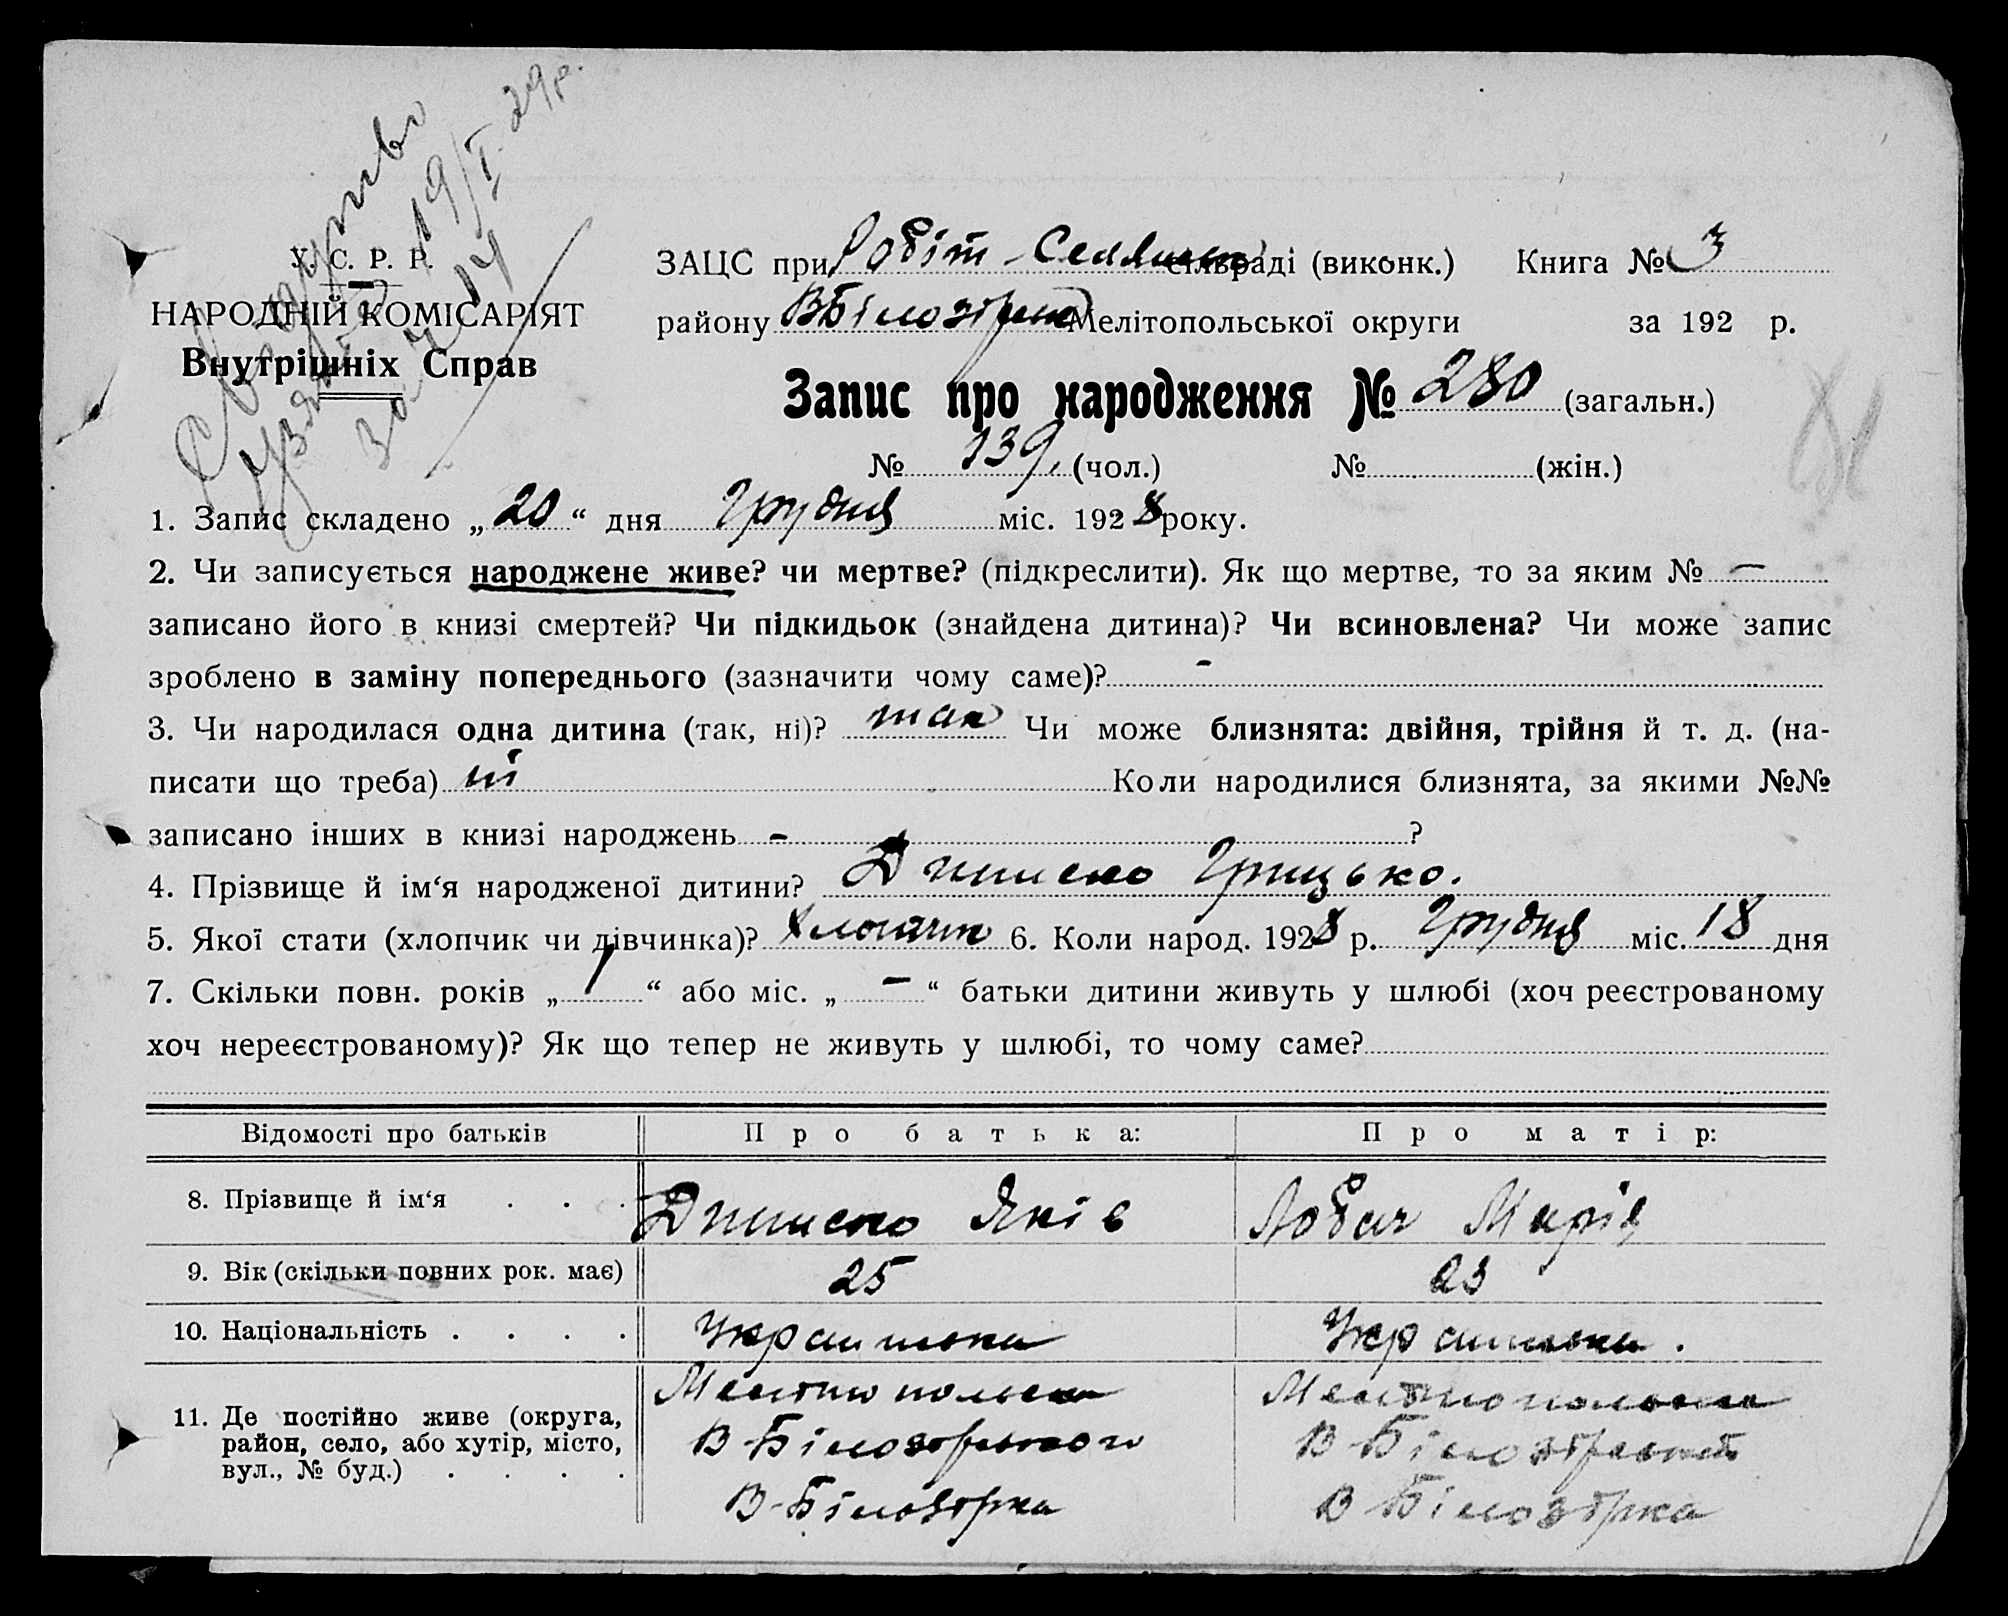 Свідоцтво
узято 19/I-29р.
за ч 14
У. С. Р. Р.
НАРОДНІЙ КОМІСАРІЯТ
Внутрішніх Справ
ЗАЦС при Робіт-Селянськ сільраді (виконк.) Книга № 3
району ВБілозірськ Мелітопольської округи за 192 р.
Запис про народження № 280 (загальн.)
№ 139, (чол.) № (жін.)
1. Запис складено „20“ дня Грудня міс. 1928 року.
2. Чи записується народжене живе? чи мертве? (підкреслити). Як що мертве, то за яким № —
записано його в книзі смертей? Чи підкидьок (знайдена дитина)? Чи всиновлена? Чи може запис
зроблено в заміну попереднього (зазначити чому саме)? -
3. Чи народилася одна дитина (так, ні)? так Чи може близнята: двійня, трійня й т. д. (на-
писати що треба) ні Коли народилися близнята, за якими №№
записано інших в книзі народжень - ?
4. Прізвище й ім‘я народженої дитини? Грицько.
5. Якої стати (хлопчик чи дівчинка)? хлопчик 6. Коли народ. 1928 р. Грудня міс. 18 дня
7. Скільки повн. років „1“ або міс. „-“ батьки дитини живуть у шлюбі (хоч реєстрованому
хоч нереєстрованому)? Як що тепер не живуть у шлюбі, то чому саме?
Відомості про батьків Про батька: Про матір:
8. Прізвище й ім‘я . . . Яків Лобач Марія
9. Вік (скільки повних рок. має) 25 23
10. Національність . . . . Українська Українська.
11. Де постійно живе (округа,
район, село, або хутір, місто,
вул., № буд.) . . . .
Мелітопольська
В-Білозірського
В-Білозірка
Мелітопольська
В-Білозірський
В Білозірка